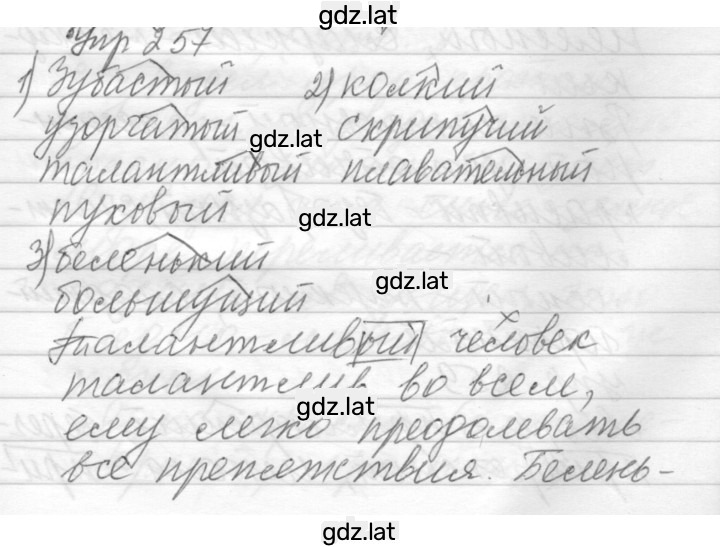 gdz.lat
Упр 257
1) Зубастый 2) колкий
узорчатый gdz.lat скрипучий
талантливый плавательный
пуховый gdz.lat
3) беленький
gdz.lat
большущий
талантливый человек
талантлив во всем,
gdz.lat
ему легко преодолевать
все препятствия. Белень-
gdz.lat